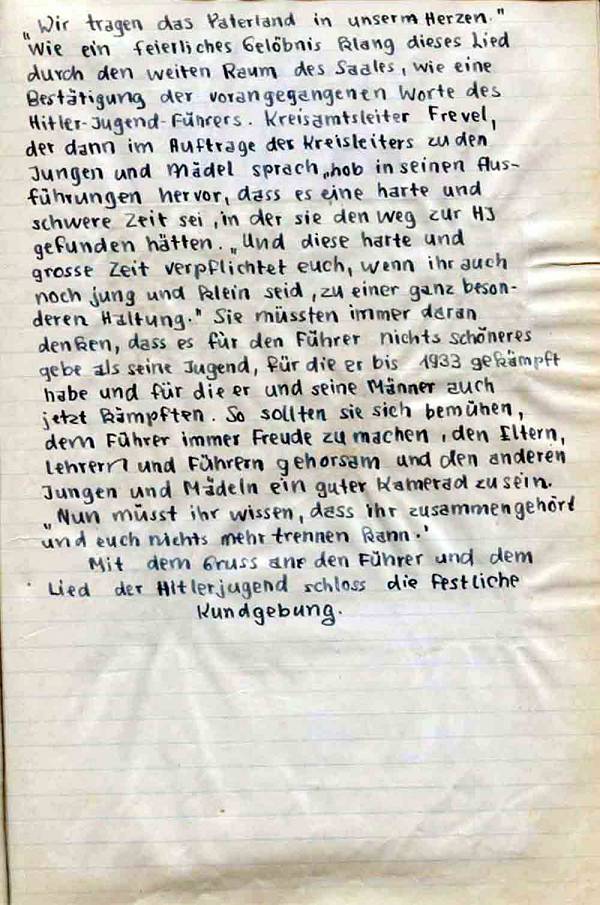 „Wir tragen das Vaterland in unserm Herzen."
Wie ein feierliches Gelöbnis klang dieses Lied
durch den weiten Raum des Saales, wie eine
Bestätigung der vorangegangenen Worte des
Hitler-Jugend-Führers. Kreisamtsleiter Frevel,
der dann im Auftrage des Kreisleiters zu den
Jungen und Mädel sprach„hob in seinen Aus-
führungen hervor, dass es eine harte und
schwere Zeit sei, in der sie den Weg zur HJ
gefunden hätten. „Und diese harte und
grosse Zeit verpflichtet euch, wenn ihr auch
noch jung und klein seid, zu einer ganz beson-
deren Haltung." Sie müssten immer daran
denken, dass es für den Führer nichts schöneres
gebe als seine Jugend, für die er bis 1933 gekämpft
habe und für die er und seine Männer auch
jetzt kämpften. So sollten sie sich bemühen,
dem Führer immer Freude zu machen, den Eltern,
Lehrern und Führern gehorsam und den anderen
Jungen und Mädeln ein guter Kamerad zu sein.
„Nun müsst ihr wissen, dass ihr zusammengehört
und euch nichts mehr trennen kann.'
Mit dem Gruss an den Führer und dem
Lied der Hitlerjugend schloss die festliche
Kundgebung.